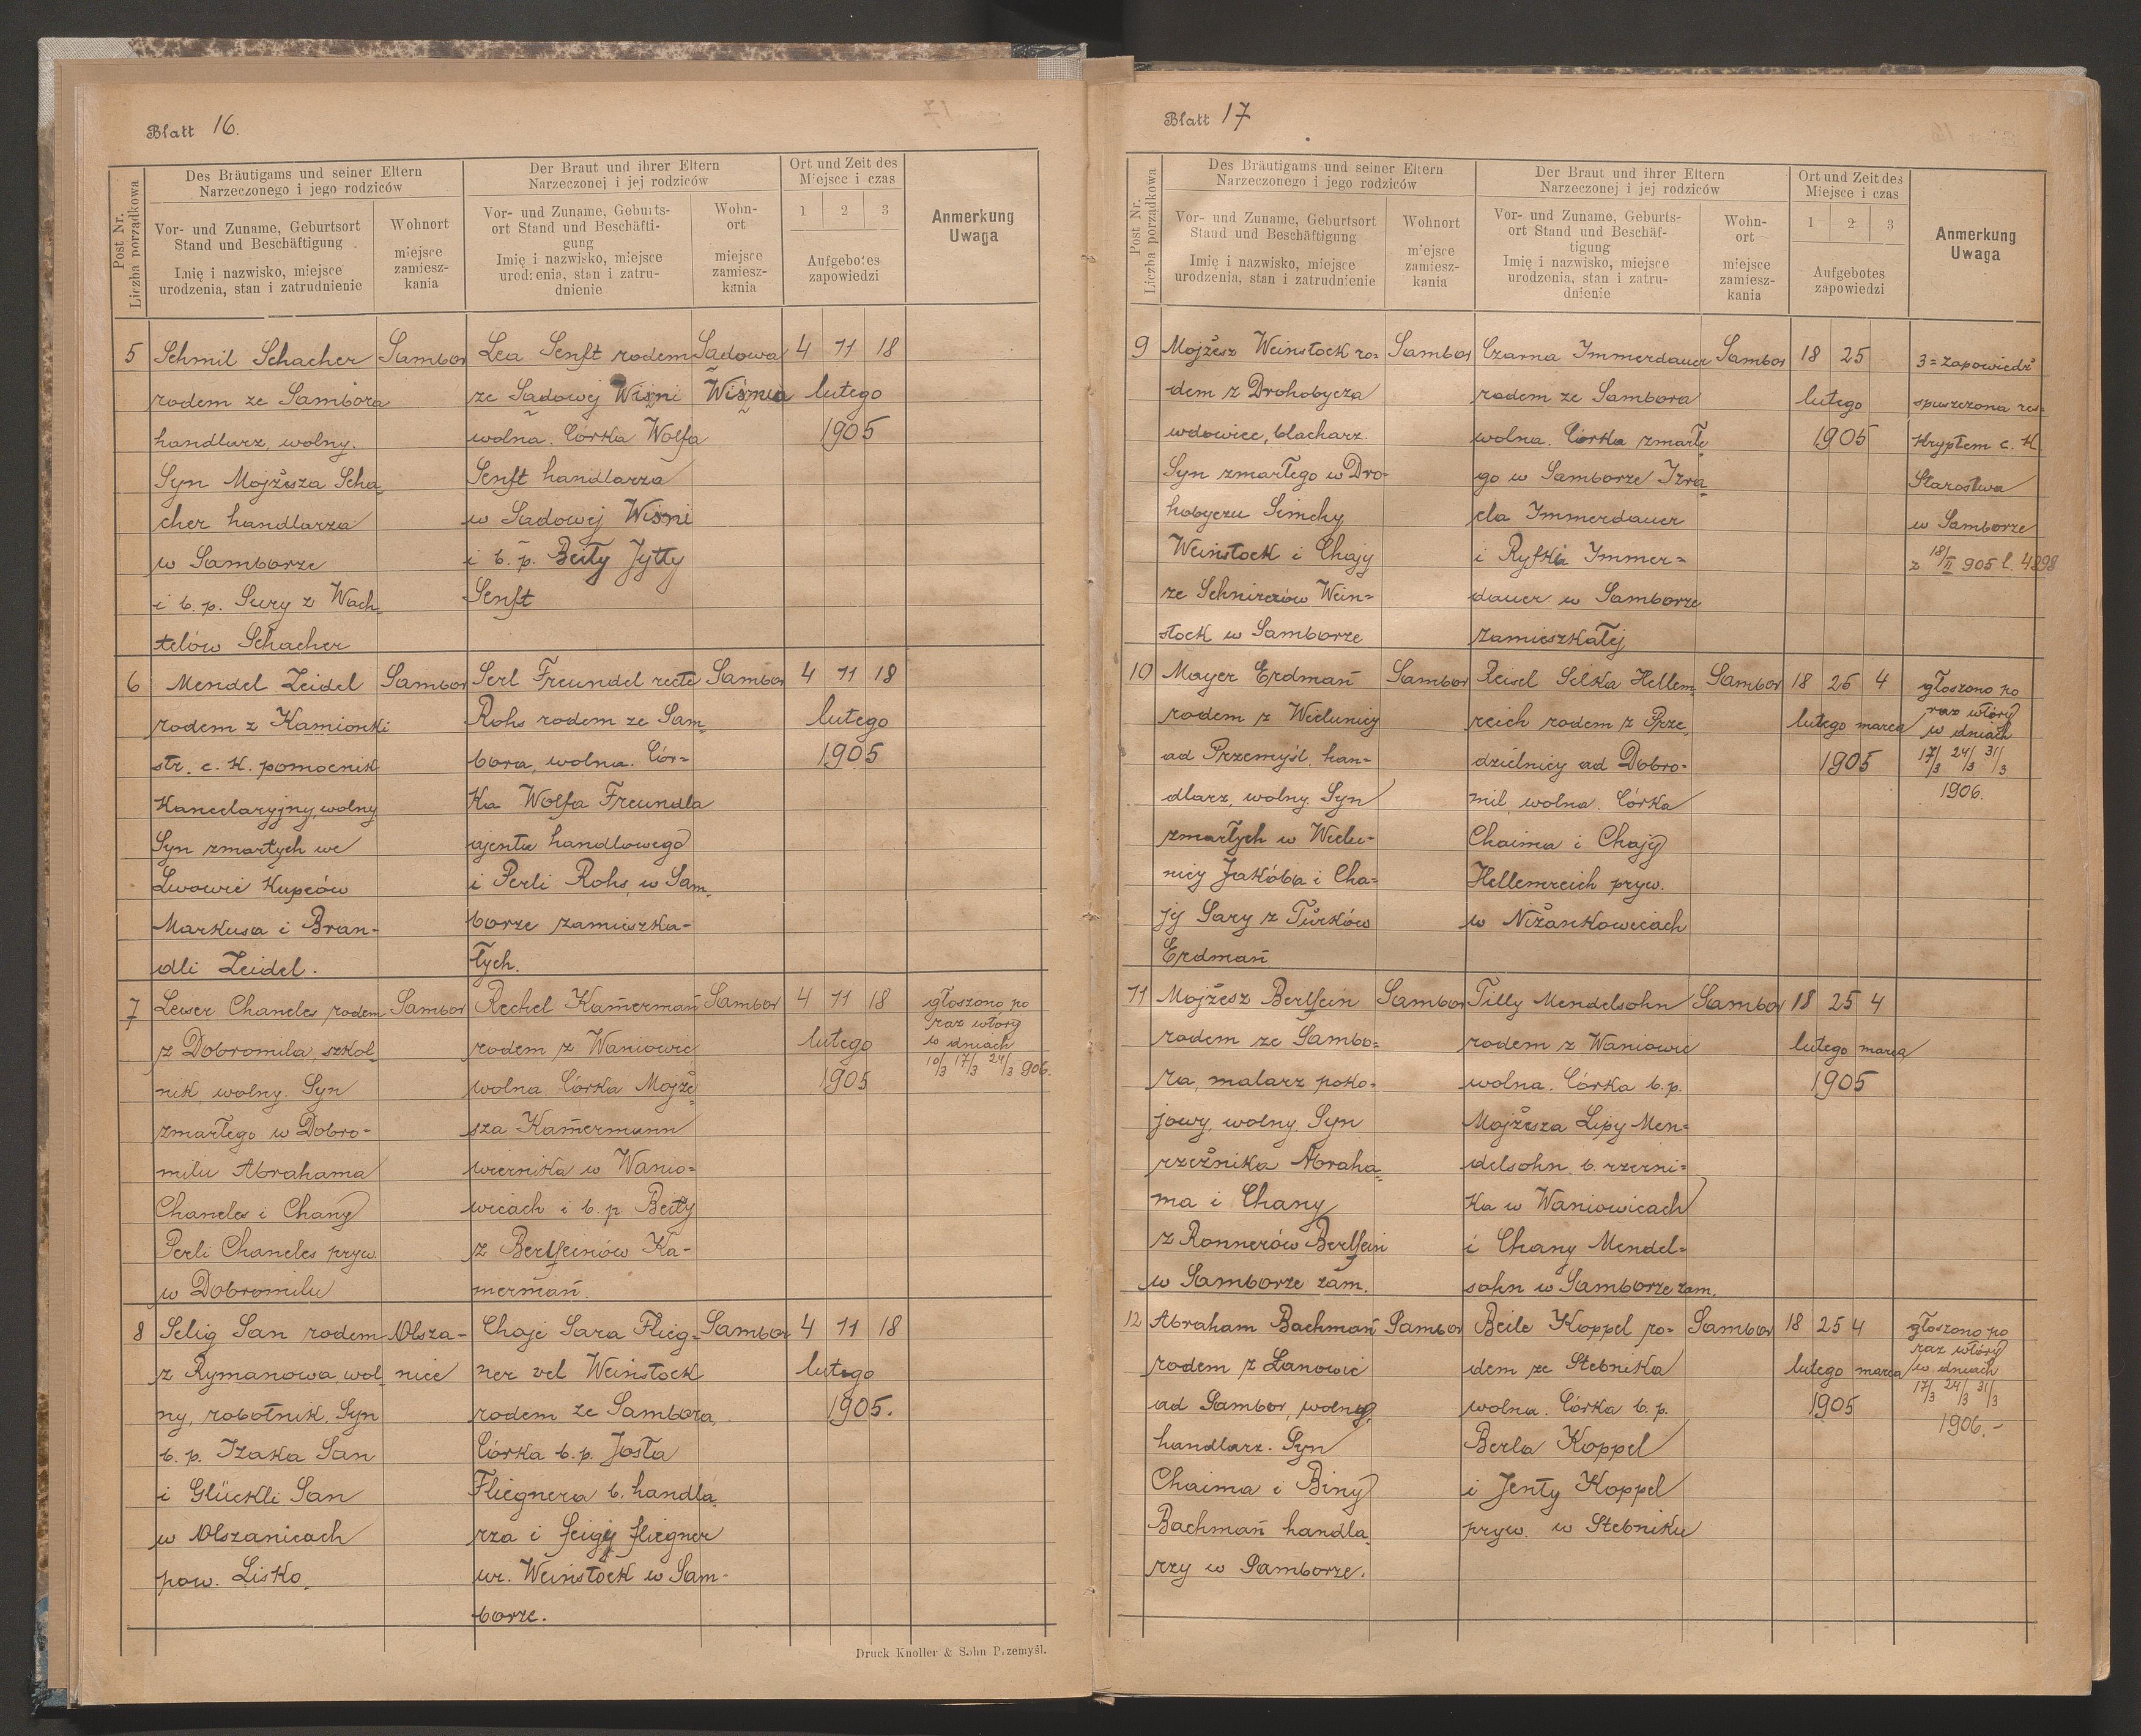 Blatt 16.
Post Nr.
Liczba porządkowa
Des Bräutigams und seiner Eltern
Narzeczonego i jego rodziców
Der Braut und ihrer Eltern
Narzeczonej i jej rodziców
Ort und Zeit des
Miejsce i czas
Anmerkung
Uwaga
Vor- und Zuname, Geburtsort
Stand und Beschäftigung
Imię i nazwisko, miejsce
urodzenia, stan i zatrudnienie
Wohnort
miejsce
zamiesz-
kania
Vor- und Zuname, Geburts-
ort Stand und Beschäfti-
gung
Imię i nazwisko, miejsce
urodzenia, stan i zatru-
dnienie
Wohn-
ort
miejsce
zamiesz-
kania
1 2 3
Aufgebotes
zapowiedzi
5 Schmil Schacher
rodem ze Sambora
handlarz, wolny.
Syn Mojżesza Scha-
cher handlarza
w Samborze
i b. p. Sury z Wach-
telów Schacher
Sambor
Lea Senft rodem
ze Sadowej Wiśni
wolna. Córka Wolfa
Senft handlarza
w Sadowej Wiśni
i b. p. Beiły Jytty
Senft
Sadowa
Wiśnia
4 11 18
lutego
1905
6 Mendel Zeidel
rodem z Kamionki
str. c. k. pomocnik
kancelaryjny, wolny
Syn zmarłych we
Lwowie kupców
Markusa i Bran-
dli Zeidel.
Sambor
Serl Freundel recte
Rohs rodem ze Sam-
bora, wolna. Cór-
ka Wolfa Freundla
ajenta handlowego
i Perli Rohs, w Sam-
borze zamieszka-
łych.
Sambor
4 11 18
lutego
1905
7 Leiser Chaneles rodem
z Dobromila, szkol-
nik wolny. Syn
zmarłego w Dobro-
milu Abrahama
Chaneles i Chany
Perli Chaneles pryw.
w Dobromilu
Sambor
Rechel Kamerman
rodem z Waniowic
wolna. Córka Mojże-
sza Kamermann
wiernika w Wanio-
wicach i b. p. Beiły
z Berlfeinów Ka-
merman.
Sambor
4 11 18
lutego
1905
głoszono po
raz wtóry
w dniach
10/3 17/3 24/3 906.
8 Selig San rodem
z Rymanowa, wol-
ny, robotnik. Syn
b. p. Izaka San
i Glückli San
w Olszanicach
pow. Lisko.
Olsza-
nice
Chaje Sara Flieg-
ner vel Weinstock
rodem ze Sambora,
Córka b. p. Josła
Fliegnera b. handla-
rza i Feigy Fliegner
w. Weinstock w Sam-
borze.
Sambor
4 11 18
lutego
1905.
Druck Knoller & Sohn Przemyśl.
Blatt 17
Post Nr.
Liczba porządkowa
Des Bräutigams und seiner Eltern
Narzeczonego i jego rodziców
Der Braut und ihrer Eltern
Narzeczonej i jej rodziców
Ort und Zeit des
Miejsce i czas
Anmerkung
Uwaga
Vor- und Zuname, Geburtsort
Stand und Beschäftigung
Imię i nazwisko, miejsce
urodzenia, stan i zatrudnienie
Wohnort
miejsce
zamiesz-
kania
Vor- und Zuname, Geburts-
ort Stand und Beschäf-
tigung
Imię i nazwisko, miejsce
urodzenia, stan i zatru-
dnienie
Wohn-
ort
miejsce
zamiesz-
kania
1 2 3
Aufgebotes
zapowiedzi
9 Mojżesz Weinstock ro-
dem z Drohobycza
wdowiec, blacharz.
Syn zmarłego w Dro-
hobyczu Simchy
Weinstock i Chajy
ze Schnirerów Wein-
stock w Samborze
Sambor
Czarna Immerdauer
rodem ze Sambora
wolna. Córka zmarłe-
go w Samborze Izra-
ela Immerdauer
i Ryfki Immer-
dauer w Samborze
zamieszkałej
Sambor
18 25
lutego
1905
3 = zapowiedź
spuszczona res-
kryptem c. k.
Starostwa
w Samborze
z 18/II 905 l. 4898
10 Mayer Erdman
rodem z Wielunicy
ad Przemyśl, han-
dlarz, wolny. Syn
zmarłych w Wielu-
nicy Jakóba i Cha-
jy Sary z Türków
Erdman
Sambor
Reisel Selka Hellem-
reich rodem z Prze-
dzielnicy ad Dobro-
mil, wolna. Córka
Chaima i Chajy
Hellemreich pryw.
w Niżankowicach
Sambor
18 25 4
lutego marca
1905
głoszono po
raz wtóry
w dniach
17/3 24/3 31/3
1906.
11 Mojżesz Berlfein
rodem ze Sambo-
ra, malarz poko-
jowy, wolny. Syn
rzeźnika Abraha-
ma i Chany
z Ronnerów Berlfein
w Samborze zam.
Sambor
Tilly Mendelsohn
rodem z Waniowic
wolna. Córka b. p.
Mojżesza Lipy Men-
delsohn b. rzeźni-
ka w Waniowicach
i Chany Mendel-
sohn w Samborze zam.
Sambor
18 25 4
lutego marca
1905
12 Abraham Bachman
rodem z Łanowic
ad Sambor, wolny,
handlarz. Syn
Chaima i Biny
Bachman handla-
rzy w Samborze.
Sambor
Beile Koppel ro-
dem ze Stebnika
wolna. Córka b. p.
Berla Koppel
i Jenty Koppel
pryw. w Stebniku
Sambor
18 25 4
lutego marca
1905
głoszono po
raz wtóry
w dniach
17/3 24/3 31/3
1906.-